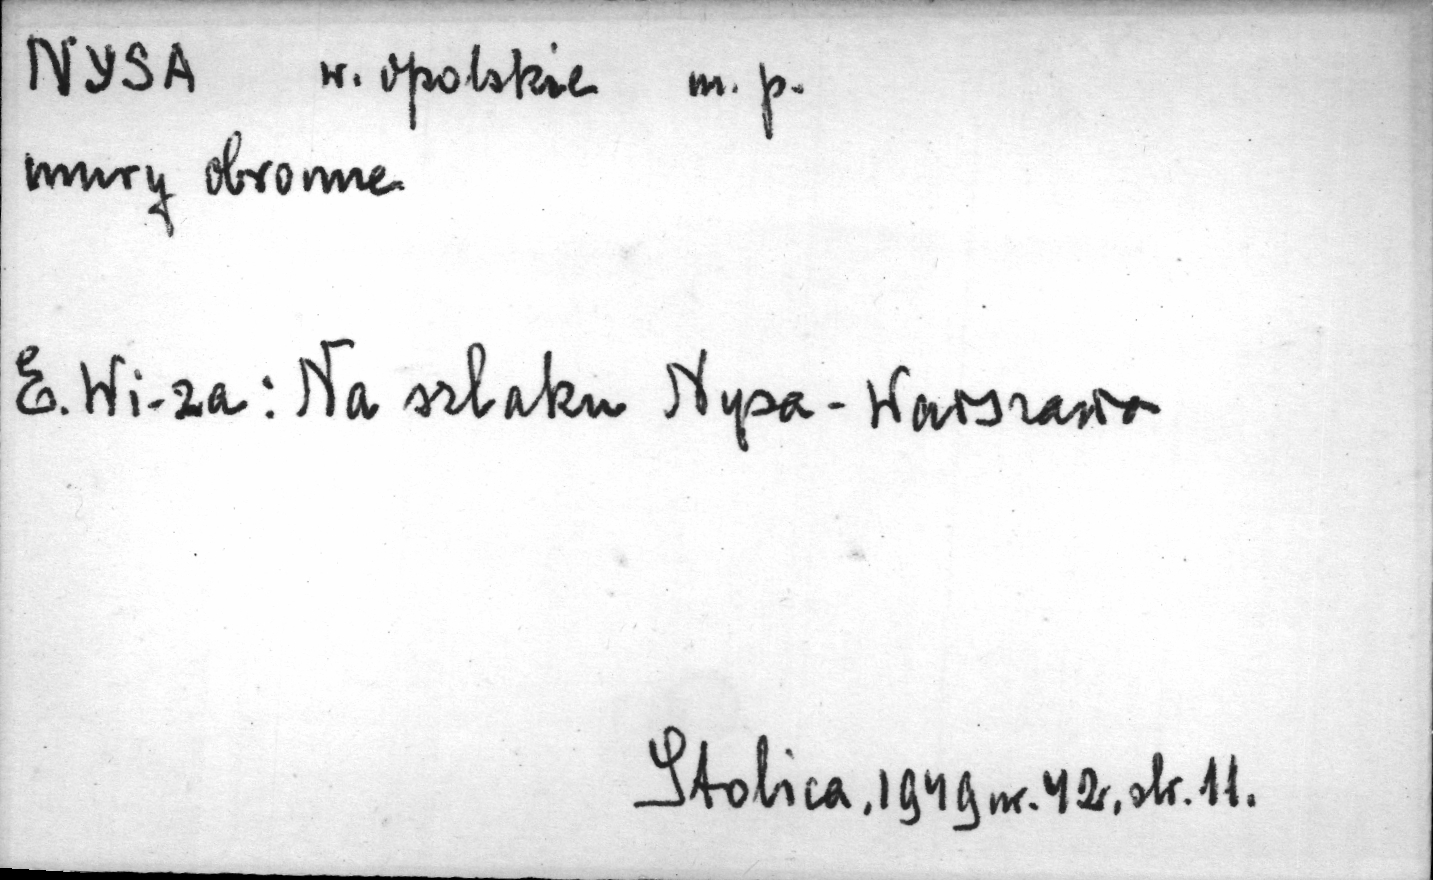 NYSA w. opolskie m. p.
mury obronne
E. Wi-za: Na szlaku Nysa - Warszawa
Stolica, 1949 nr. 42, str. 11.